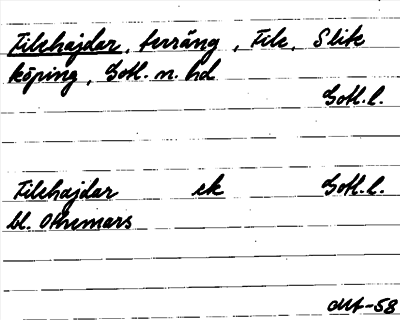 Filehajdar, terräng, File, Slite
köping, Gotl. n. hd
Gotl. l.
Filehajdar ek Gotl. l.
bl. Othemars
-58